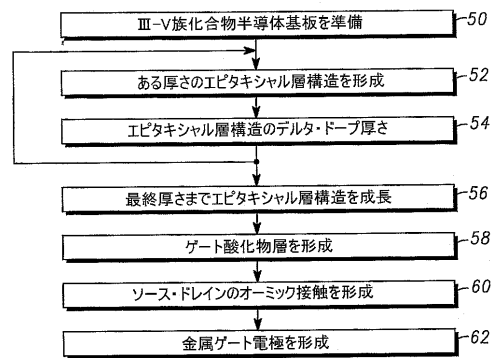 III-V族化合物半導体基板を準備 50
ある厚さのエピタキシャル層構造を形成 52
エピタキシャル層構造のデルタ・ドープ厚さ 54
最終厚さまでエピタキシャル層構造を成長 56
ゲート酸化物層を形成 58
ソース・ドレインのオーミック接触を形成 60
金属ゲート電極を形成 62